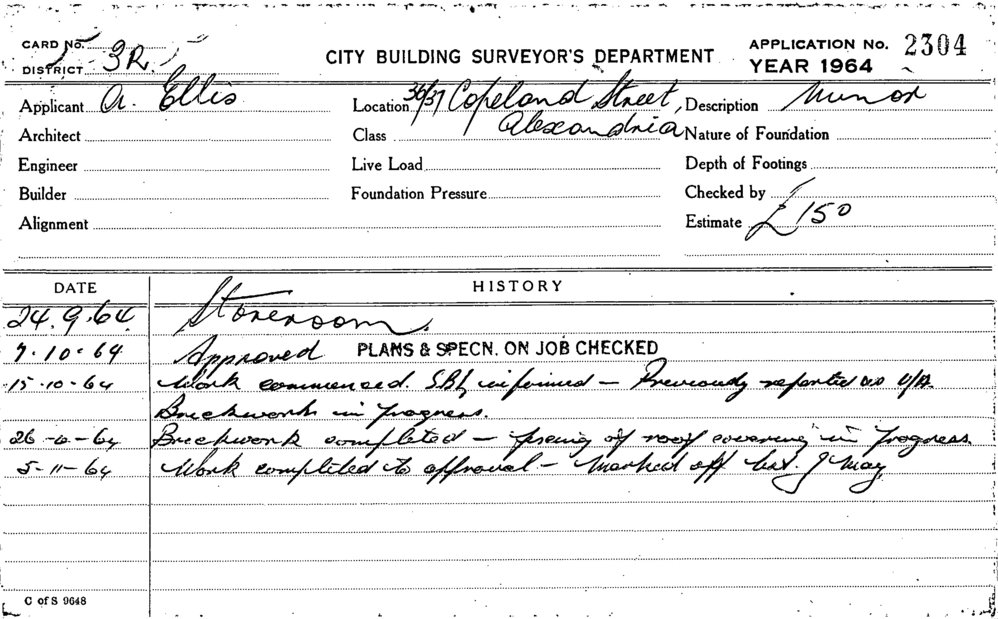 CARD No.
DISTRICT 3R.
CITY BUILDING SURVEYOR'S DEPARTMENT
APPLICATION No. 2304
YEAR 1964
Applicant A. Ellis
Location 36/37 Copeland Street,
Alexandria
Description Minor
Architect
Class
Nature of Foundation
Engineer
Live Load
Depth of Footings
Builder
Foundation Pressure
Checked by
Alignment
Estimate £150
DATE HISTORY
24.9.64. Storeroom.
7-10-64 Approved PLANS & SPECN. ON JOB CHECKED
15-10-64 Work commenced. informed – Previously reported as
Brickwork in progress.
26-10-64 Brickwork completed – fixing of roof covering in progress.
5-11-64 Work completed to approval – Marked off list. J May
C of S 9648